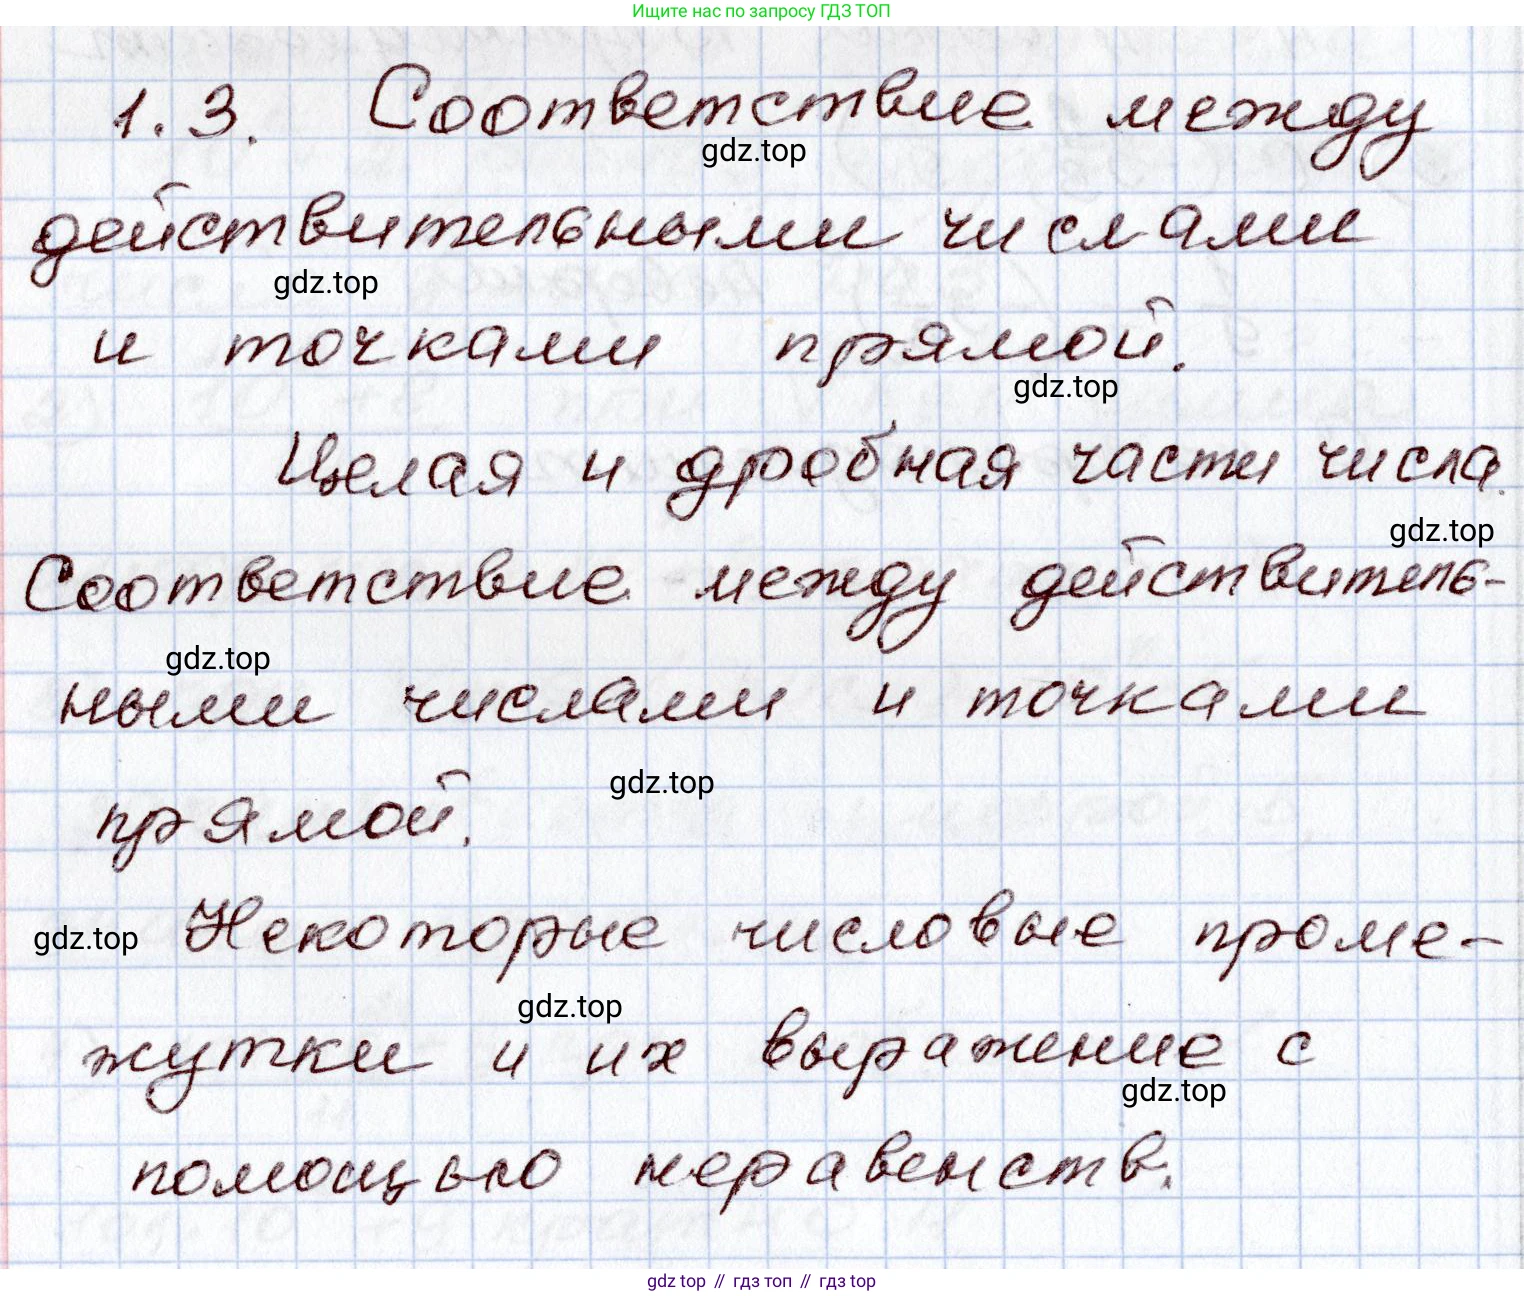 Ищите нас по запросу ГДЗ ТОП
1.3. Соответствие между
gdz.top
действительными числами
gdz.top
и точками прямой.
gdz.top
Целая и дробная части числа.
gdz.top
Соответствие между действитель-
gdz.top
ными числами и точками
gdz.top
прямой.
gdz.top Некоторые числовые проме-
gdz.top
жутки и их выражение с
gdz.top
помощью неравенств.
gdz top // гдз топ // гдз top